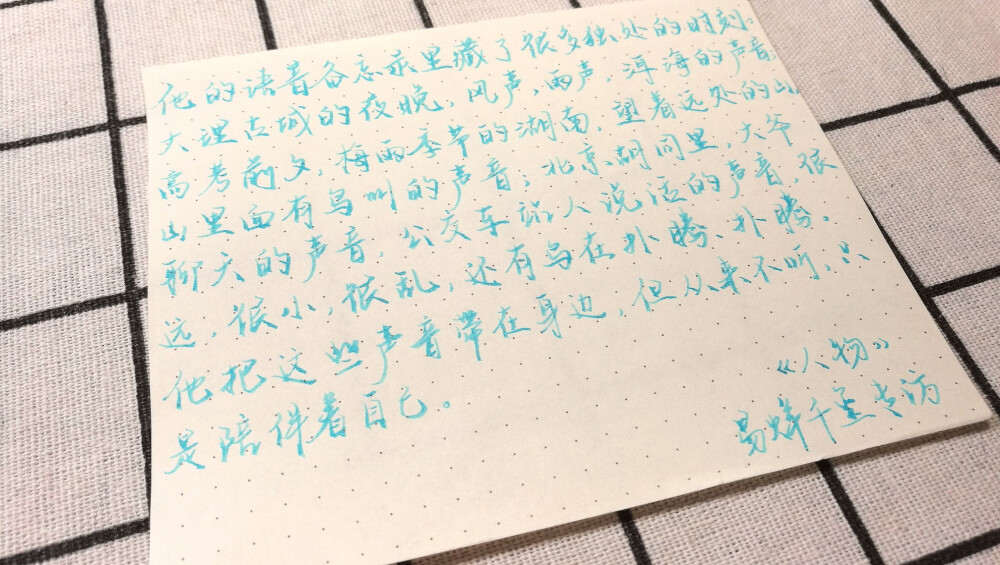 他的语音备忘录里藏了很多独处的时刻：
大理古城的夜晚，风声，雨声，洱海的声音；
高考前夕，梅雨季节的湖南，望着远处的山，
山里面有鸟叫的声音；北京胡同里，大爷
聊天的声音，公交车站人说话的声音，很
远，很小，很乱，还有鸟在扑腾、扑腾。
他把这些声音带在身边，但从来不听，只
是陪伴着自己。
《人物》
易烊千玺专访